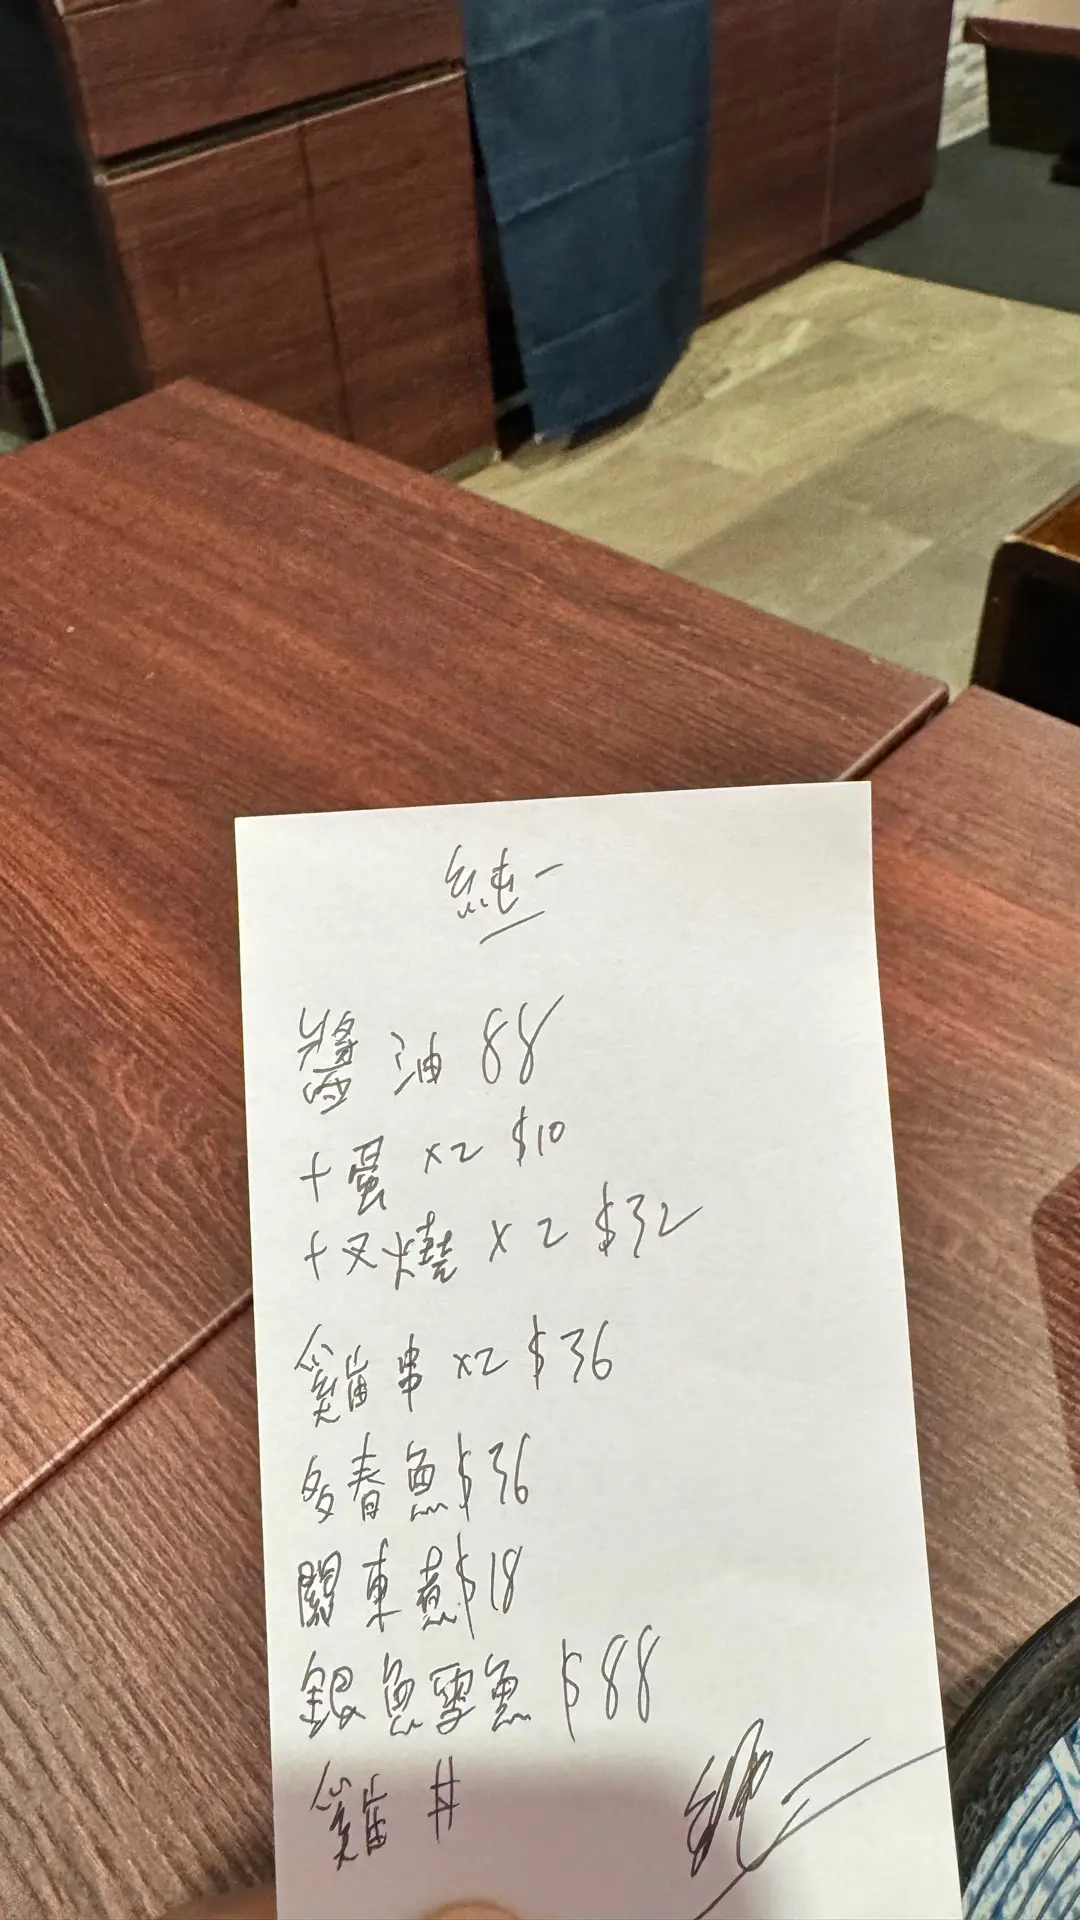 純一
醬油 88
+蛋 x2 $10
+叉燒 x2 $32
雞串 x2 $36
多春魚 $36
關東煮 $18
銀魚雪魚 $88
雞丼